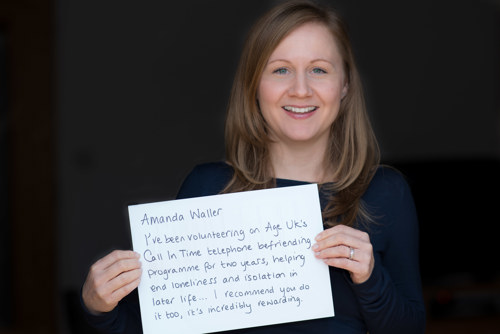 Amanda Waller
I've been volunteering on Age UK's
Call In Time telephone befriending
programme for two years, helping
end loneliness and isolation in
later life... I recommend you do
it too, it's incredibly rewarding.